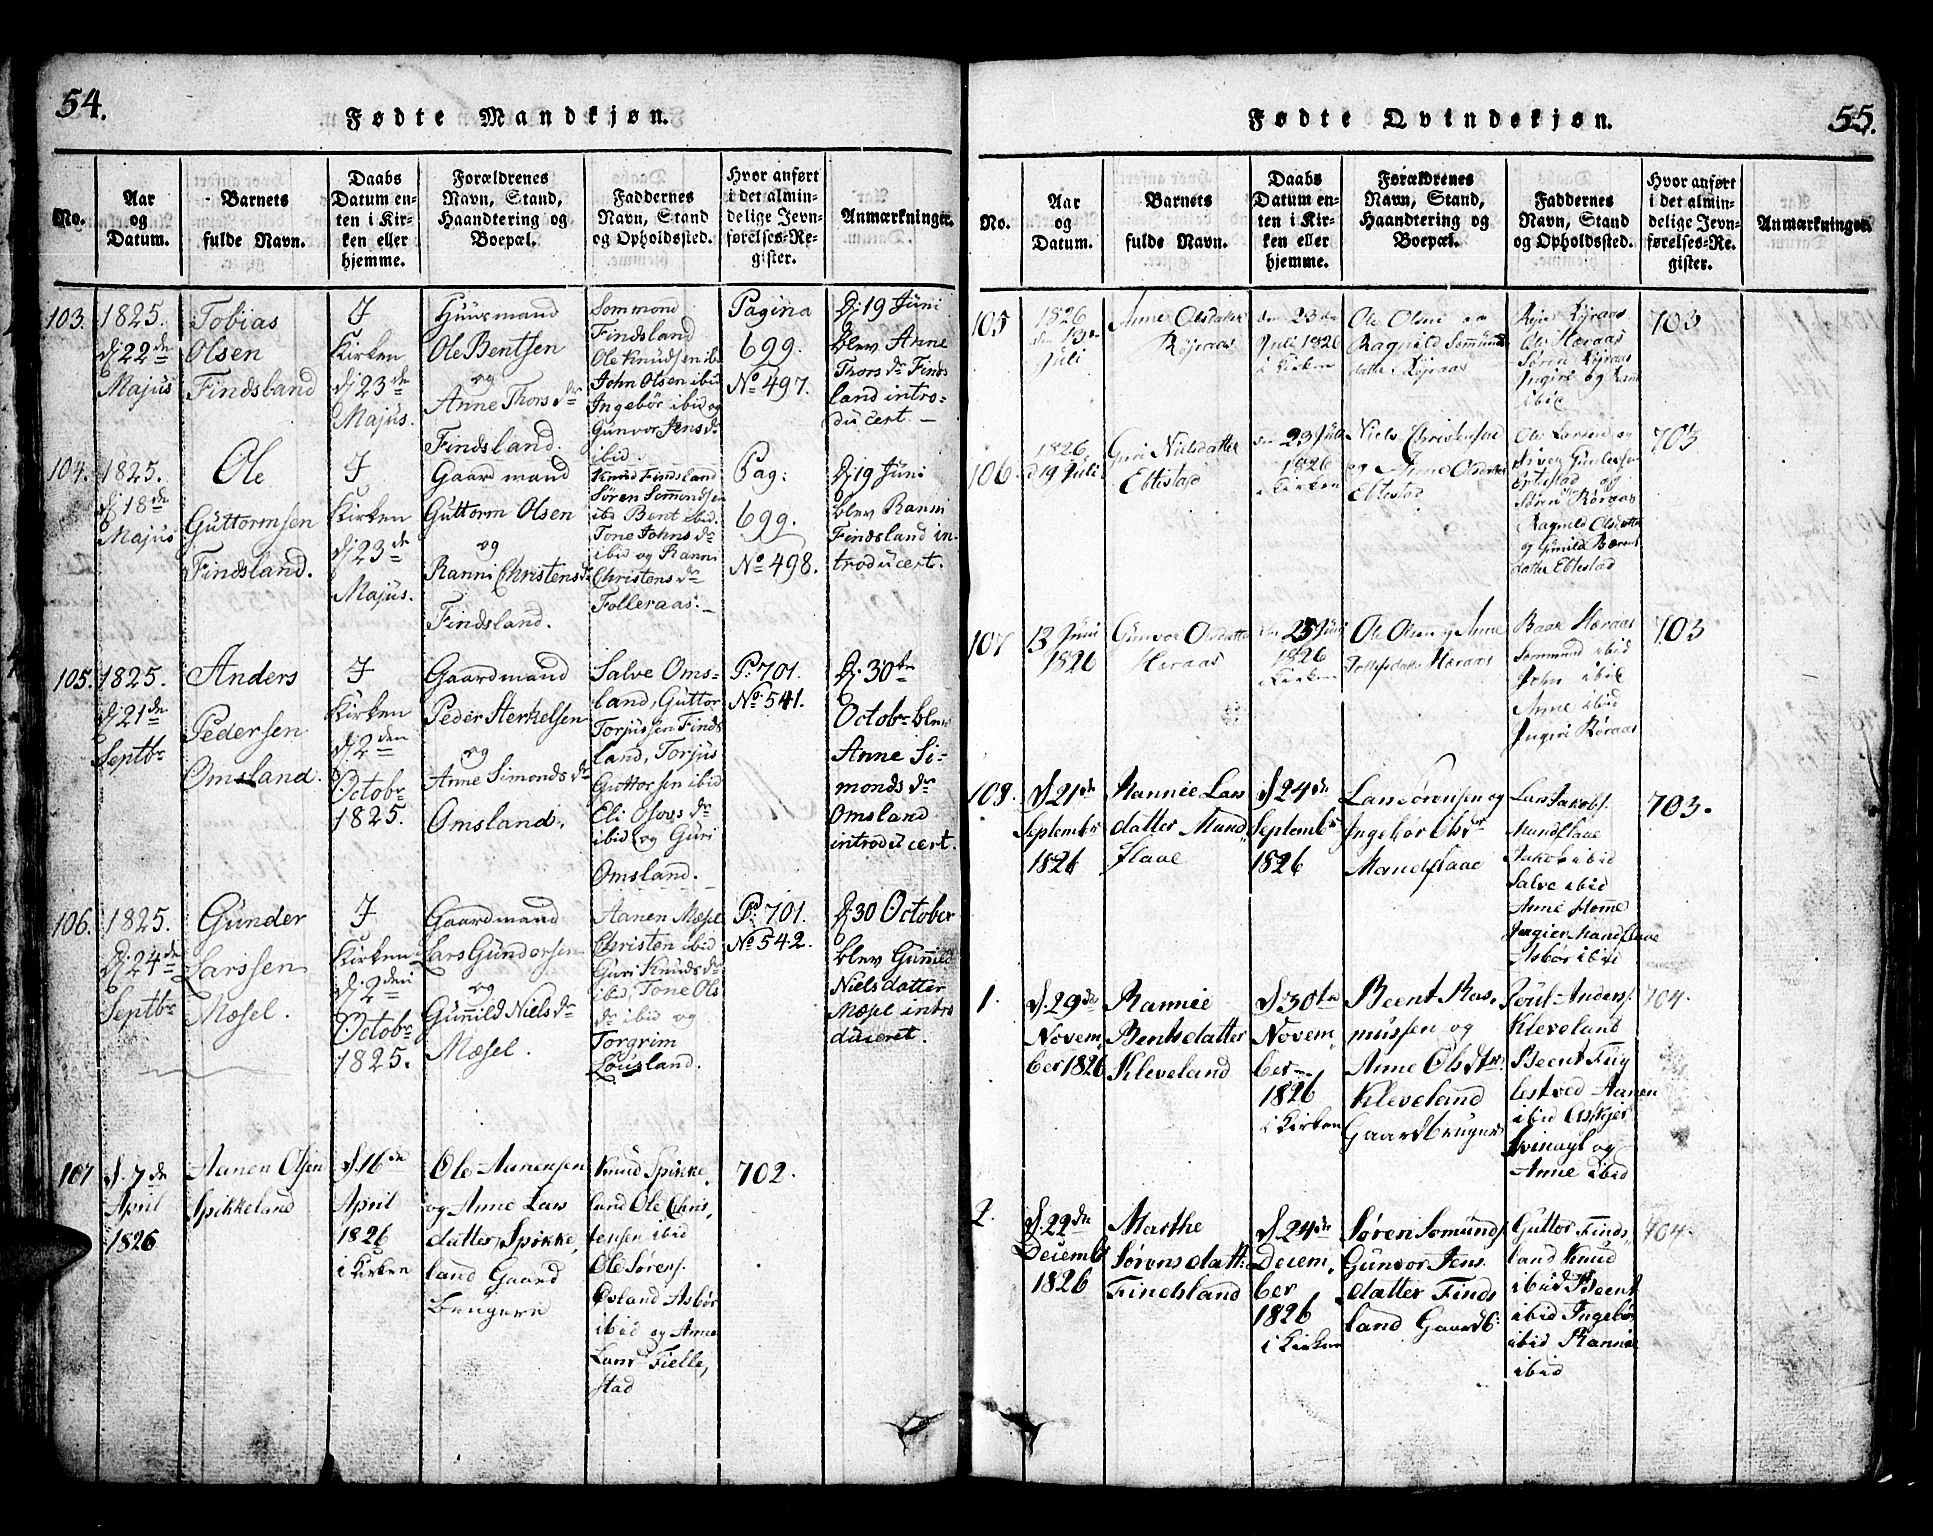 54.
Fødte Mandkjøn.
No.
Aar
og
Datum.
Barnets
fulde Navn.
Daabs
Datum en-
ten i Kir-
ken eller
hjemme.
Forældrenes
Navn, Stand,
Haandtering og
Boepæl.
Faddernes
Navn, Stand
og Opholdssted.
Hvor anført
i det almin-
delige Jevn-
førelses-Re-
gister.
Anmærkninger.
103.
1825.
d 22de
Majus
Tobias
Olsen
Findsland
I
Kirken
d 23de
Majus.
Huusmand
Ole Bentsen
og
Anne Thors Dr
Findsland.
Sommond
Findsland
Ole Knudsen ibd
John Olsen ibid
Ingebór ibid og
Gunvor Jens dr
ibid.
Pagina
699.
No 497.
D. 19 Juni
blev Anne
Thors Dr Finds
land intro-
ducert. –
104.
1825.
d 18de
Majus
Ole
Guttormsen
Findsland.
I
Kirken
d 23de
Majus.
Gaardmand
Guttorm Olsen
og
Ranni Christens dr
Findsland.
Knud Findsland
Søren Sommondsen
ibd Bent ibid.
Tone Johns dr
ibid og Ranni
Christens dr
Folleraas. –
Pag:
699.
No 498.
D. 19 Juni
blev Ranni
Findsland in-
troducert.
105.
1825.
d 21de
Septbr
Anders
Pedersen
Omsland.
I
Kirken
d 2den
Octobr
1825.
Gaardmand
Peder Herkelsen
og
Anne Simonds dr
Omsland.
Salve Oms-
land, Guttor
Torjussen Finds
land, Torjus
Guttorsen ibid
Eli Osovs dr
ibid og Guri
Omsland.
P. 701.
No. 541.
D. 30te
Octobr blev
Anne Si-
monds dr
Omsland
introducert.
106.
1825.
D. 24de
Septbr
Gunder
Larssen
Mæsel.
I
Kirken
d 2den
Octobr
1825.
Gaardmand
Lars Gundersen
og
Gunild Niels dr
Mæsel.
Aanen Mæsel
Christen ibid
Guri Knuds dr
ibid, Tone Ols
dr ibid og
Torgrim
Lousland.
P. 701.
No 542.
D. 30 October
blev Gunild
Nielsdatter
Mæsel intro
duceret.
107
d. 7de
April
1826
Aanen Olsen
Spikkeland
d 16de
April
1826
i Kirken
Ole Aanensen
og Anne Lars
datter Spikke,
land Gaard
Brugere
Knud Spikke,
land Ole Chris,
tensen ibid
Ole Sørens.
Øsland Asbør
ibid og Anne
Larsd Fielle,
stad
702.
55.
Fødte Qvindekjøn.
No.
Aar
og
Datum.
Barnets
fulde Navn.
Daabs
Datum en-
ten i Kir-
ken eller
hjemme.
Forældrenes
Navn, Stand,
Haandtering og
Boepæl.
Faddernes
Navn, Stand
og Opholdssted.
Hvor anført
i det almin-
delige Jevn-
førelses-Re-
gister.
Anmærkninger.
105
1826
den 13de
Juli
Anne Olsdatter
Røiraas
den 23de
Juli 1826
i Kirken
Ole Olsen og
Ragnild Sommunds
datter Røiraas
Røiraas
Ole Høraas
Søren Røiraas
Ingiri og
ibid
703
106
1826
d 19 Juli
Guri Nielsdatter
Eptestad
den 23 Juli
1826
i Kirken
Niels Christensen
og Anne Olsdatter
Eptestad
Ole Larsen og
Eptestad og
Søren Røraas
Ragnild Olsdatter
og Gunild Bærents
datter Eptestad
703
107
13 Juni
1826
Gunvor Olsdatter
Høraas
den 25 Juni
1826
i Kirken
Ole Olsen og Anne
Høraas
Høraas
Sommund ibid
John ibid
Anne ibid
Ingiri Røraas
703
108.
d 21de
Septembr
1826
Rannie Lars
datter Mand
flaae
d 24de
Septembr
1826
Lars Sørensen og
Ingebør Olsdr
Mandflaae
Lars Jakobs.
Mandflaae
Jakob ibid
Salve ibid
Anne Homme
Ingier Mandflaae
Asbør ibid
703.
1.
d. 29de
Novem,
ber 1826
Rannie
Bentsdatter
Kleveland
d. 30te
Novem,
ber
1826
i Kirken
Beent Ras,
mussen og
Anne Olsdtr
Kleveland
Gaardbruger
Poul Anders.
Kleveland
Beent Fug
lestved Aanen
ibid Askjer
Qvinagl og
Anne ibid
704.
2.
d. 22de
Decembr
1826
Marthe
Sørensdatt:
Findsland
d 24de
Decem,
ber
1826
i Kirken
Søren Somunds.
Gunvor Jens
datter Finds
land Gaardb:
Guttor Finds,
land Knud
ibid Beent
ibid Ingebør
ibid Rannie
ibid
704.